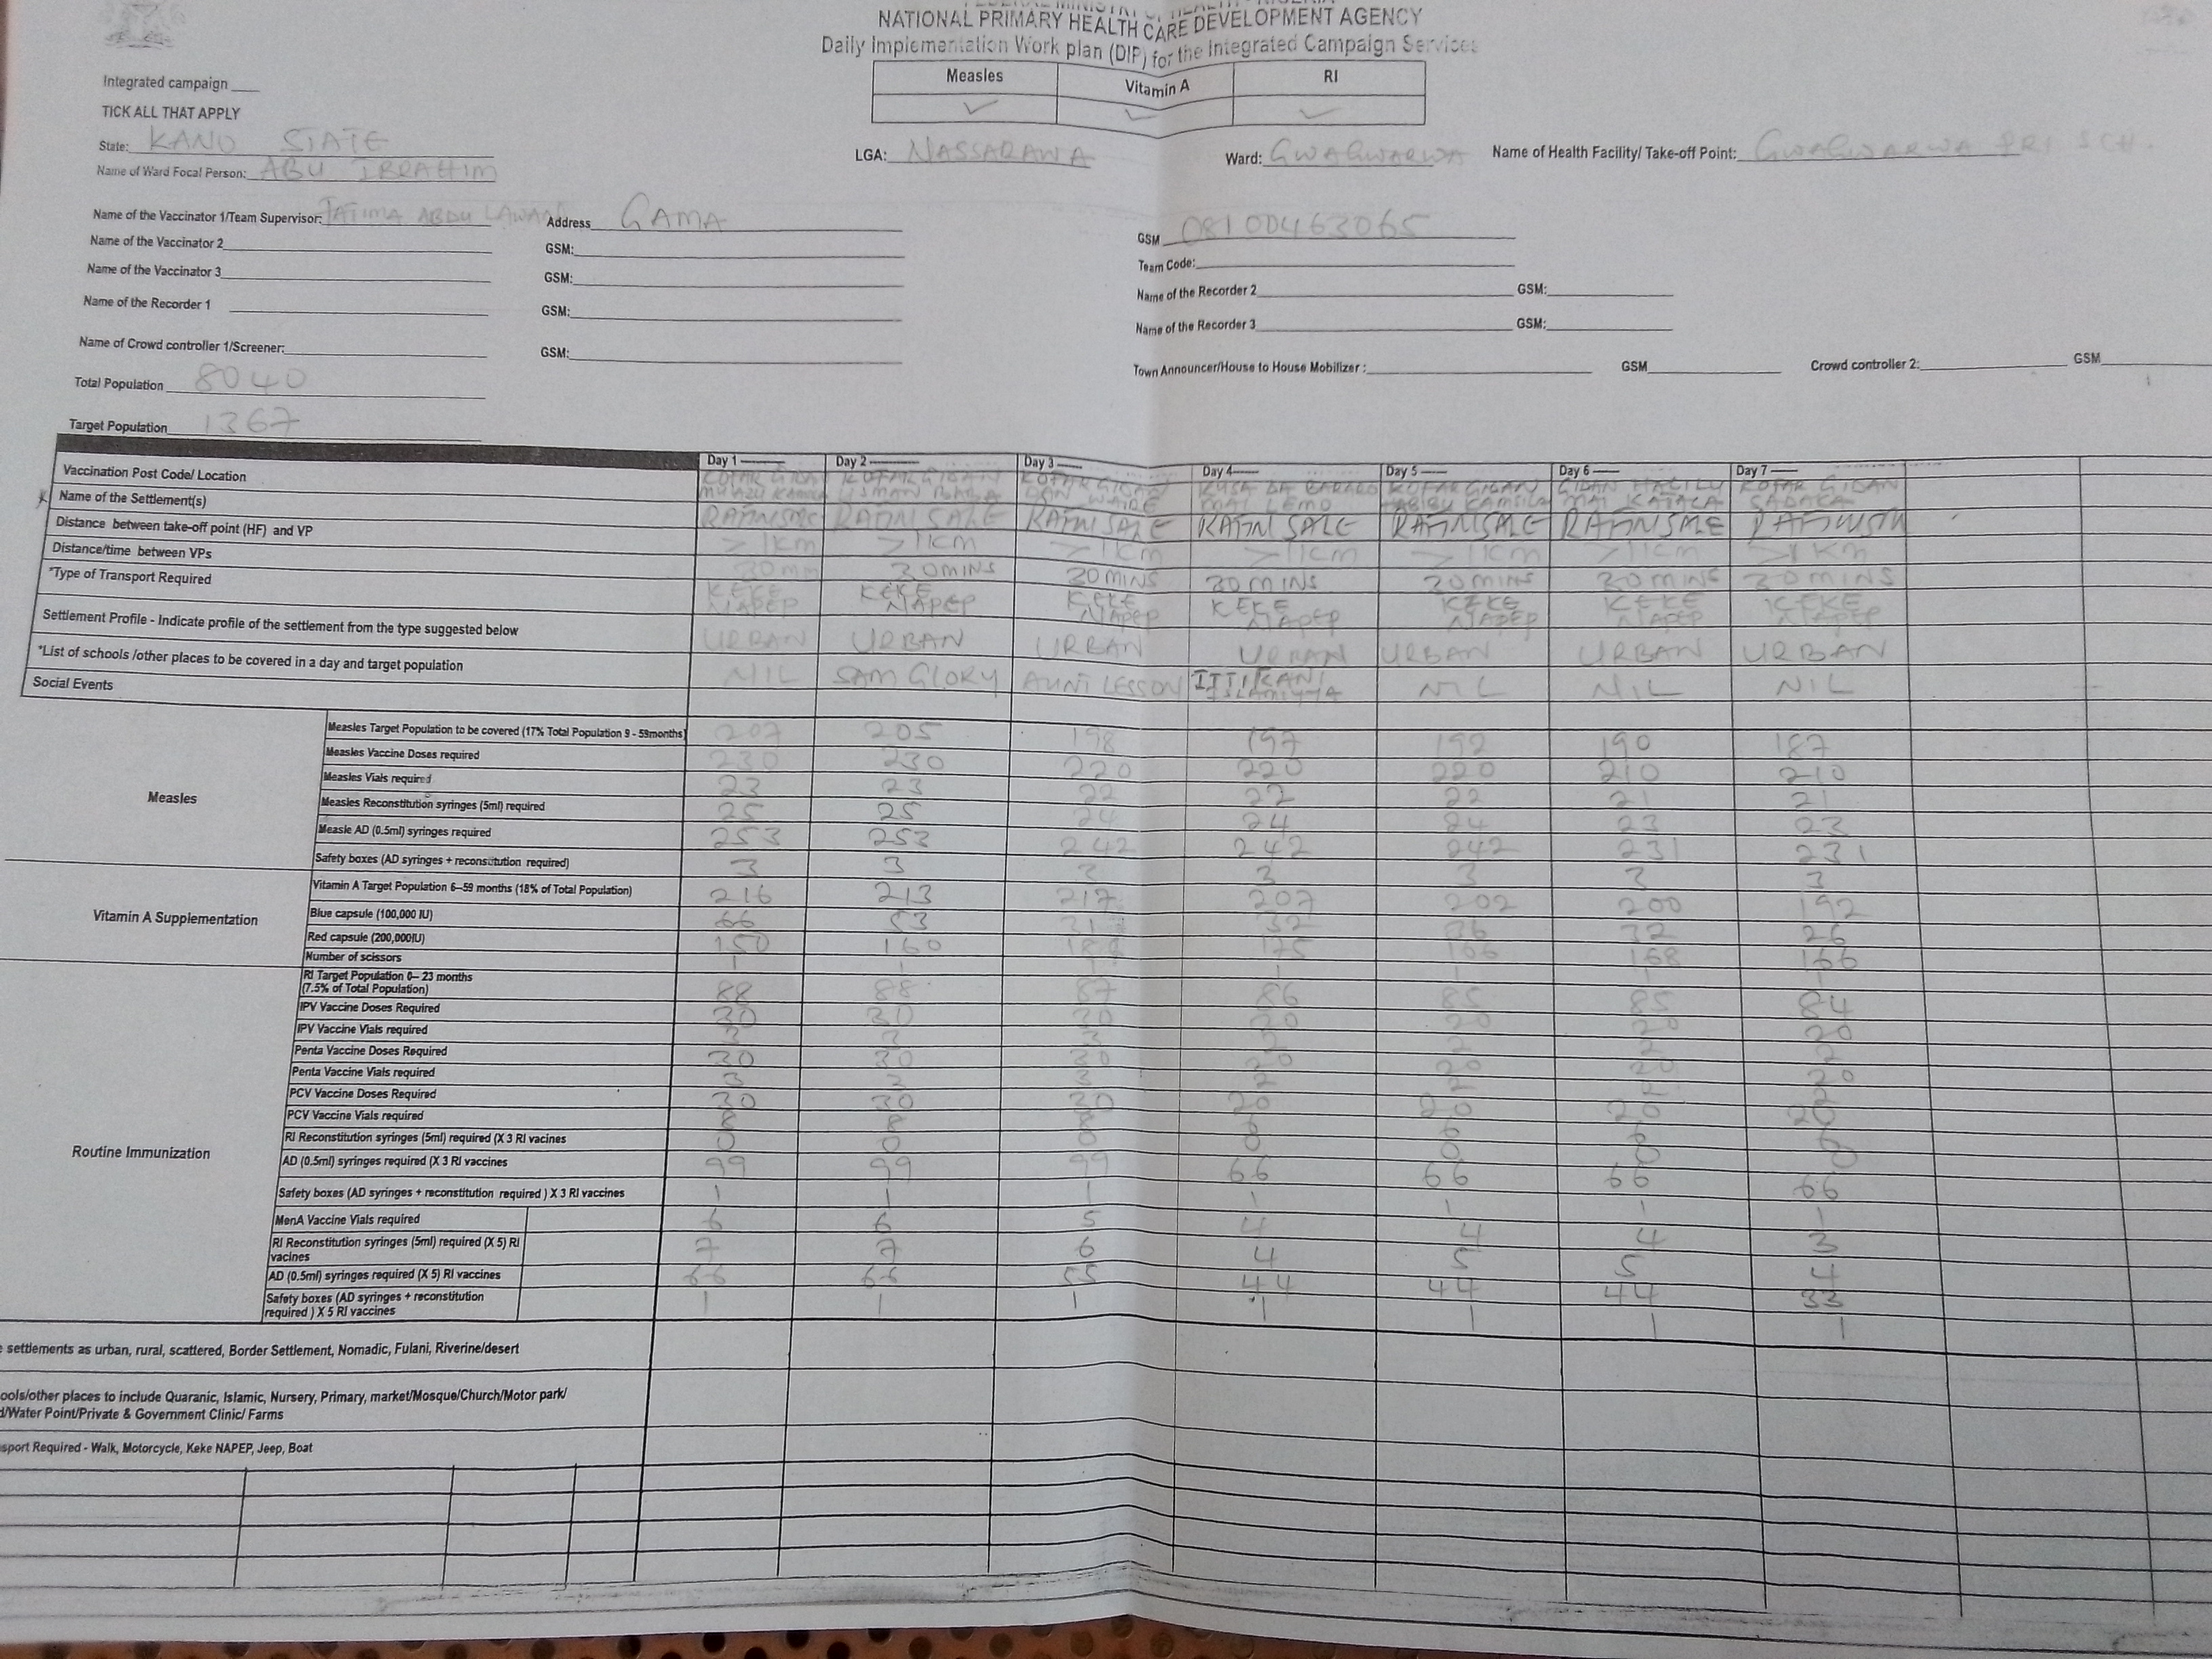 NATIONAL PRIMARY HEALTH CARE DEVELOPMENT AGENCY
Daily Implementation Work plan (DIP) for the Integrated Campaign Services
Measles Vitamin A RI
✓ ✓ ✓
Integrated campaign
TICK ALL THAT APPLY
State: KANO STATE LGA: NASSARAWA Ward: GWAGWARWA Name of Health Facility/ Take-off Point: GWAGWARWA PRI SCH.
Name of Ward Focal Person: ABU IBRAHIM
Name of the Vaccinator 1/Team Supervisor: FATIMA ABDU LAWAN Address GAMA GSM 08100463065
Name of the Vaccinator 2 GSM: Team Code:
Name of the Vaccinator 3 GSM: Name of the Recorder 2 GSM:
Name of the Recorder 1 GSM: Name of the Recorder 3 GSM:
Name of Crowd controller 1/Screener: GSM: Town Announcer/House to House Mobilizer : GSM Crowd controller 2: GSM
Total Population 8040
Target Population 1367
Day 1 Day 2 Day 3 Day 4 Day 5 Day 6 Day 7
Vaccination Post Code/ Location KOFAR GIDAN KOFAR GIDAN USMAN BABA KOFAR GIDAN MAI LEMO KOFAR GIDAN GIDAN MAI KATAKA KOFAR GIDAN SADAKA
Name of the Settlement(s) RAFIN SALE RAFIN SALE RAFIN SALE RAFIN SALE RAFIN SALE RAFIN SALE
Distance between take-off point (HF) and VP >1KM >1KM >1KM >1KM >1KM >1KM >1KM
Distance/time between VPs 30MINS 30MINS 30MINS 30MINS 30MINS 30MINS
*Type of Transport Required KEKE NAPEP KEKE NAPEP KEKE NAPEP KEKE NAPEP KEKE NAPEP KEKE NAPEP KEKE NAPEP
Settlement Profile - Indicate profile of the settlement from the type suggested below URBAN URBAN URBAN URBAN URBAN URBAN URBAN
*List of schools /other places to be covered in a day and target population NIL SAM GLORY AUNT LESSON ISLAMIYYA NIL NIL NIL
Social Events
Measles
Measles Target Population to be covered (17% Total Population 9 - 59months) 207 205 198 197 192 190 187
Measles Vaccine Doses required 230 230 220 220 220 210 210
Measles Vials required 23 23 22 22 22 21 21
Measles Reconstitution syringes (5ml) required 25 25 24 24 24 23 23
Measle AD (0.5ml) syringes required 253 253 242 242 242 231 231
Safety boxes (AD syringes + reconsitution required) 3 3 3 3 3 3 3
Vitamin A Supplementation
Vitamin A Target Population 6–59 months (18% of Total Population) 216 213 217 207 202 200 192
Blue capsule (100,000 IU) 66 53 31 32 36 32 26
Red capsule (200,000IU) 150 160 175 166 168 166
Number of scissors 1 1 1 1 1 1 1
Routine Immunization
RI Target Population 0– 23 months
(7.5% of Total Population) 88 88 87 86 85 85 84
IPV Vaccine Doses Required 30 30 30 20 20 20 20
IPV Vaccine Vials required 3 3 3 2 2 2 2
Penta Vaccine Doses Required 30 30 30 20 20 20 20
Penta Vaccine Vials required 3 3 3 2 2 2 2
PCV Vaccine Doses Required 30 30 30 20 20 20 20
PCV Vaccine Vials required 8 8 8 6 6 6 6
RI Reconstitution syringes (5ml) required (X 3 RI vacines 0 0 0 0 0 0 0
AD (0.5ml) syringes required (X 3 RI vaccines 99 99 99 66 66 66 66
Safety boxes (AD syringes + reconstitution required ) X 3 RI vaccines 1 1 1 1 1 1 1
MenA Vaccine Vials required 6 6 5 4 4 4 3
RI Reconstitution syringes (5ml) required (X 5) RI
vacines 7 7 6 4 5 5 4
AD (0.5ml) syringes required (X 5) RI vaccines 66 66 55 44 44 44 33
Safety boxes (AD syringes + reconstitution
required ) X 5 RI vaccines 1 1 1 1 1 1 1
settlements as urban, rural, scattered, Border Settlement, Nomadic, Fulani, Riverine/desert
ools/other places to include Quaranic, Islamic, Nursery, Primary, market/Mosque/Church/Motor park/
d/Water Point/Private & Government Clinic/ Farms
sport Required - Walk, Motorcycle, Keke NAPEP, Jeep, Boat